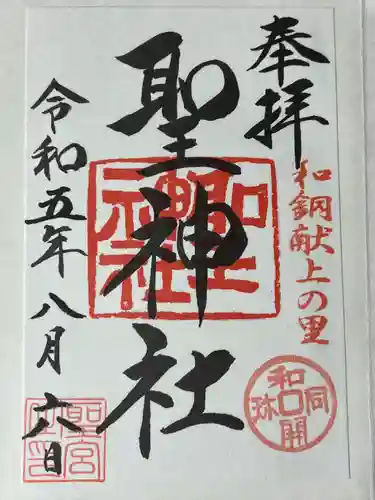 奉拝
和銅献上の里
和同開珎
聖神社
聖神社
令和五年八月六日